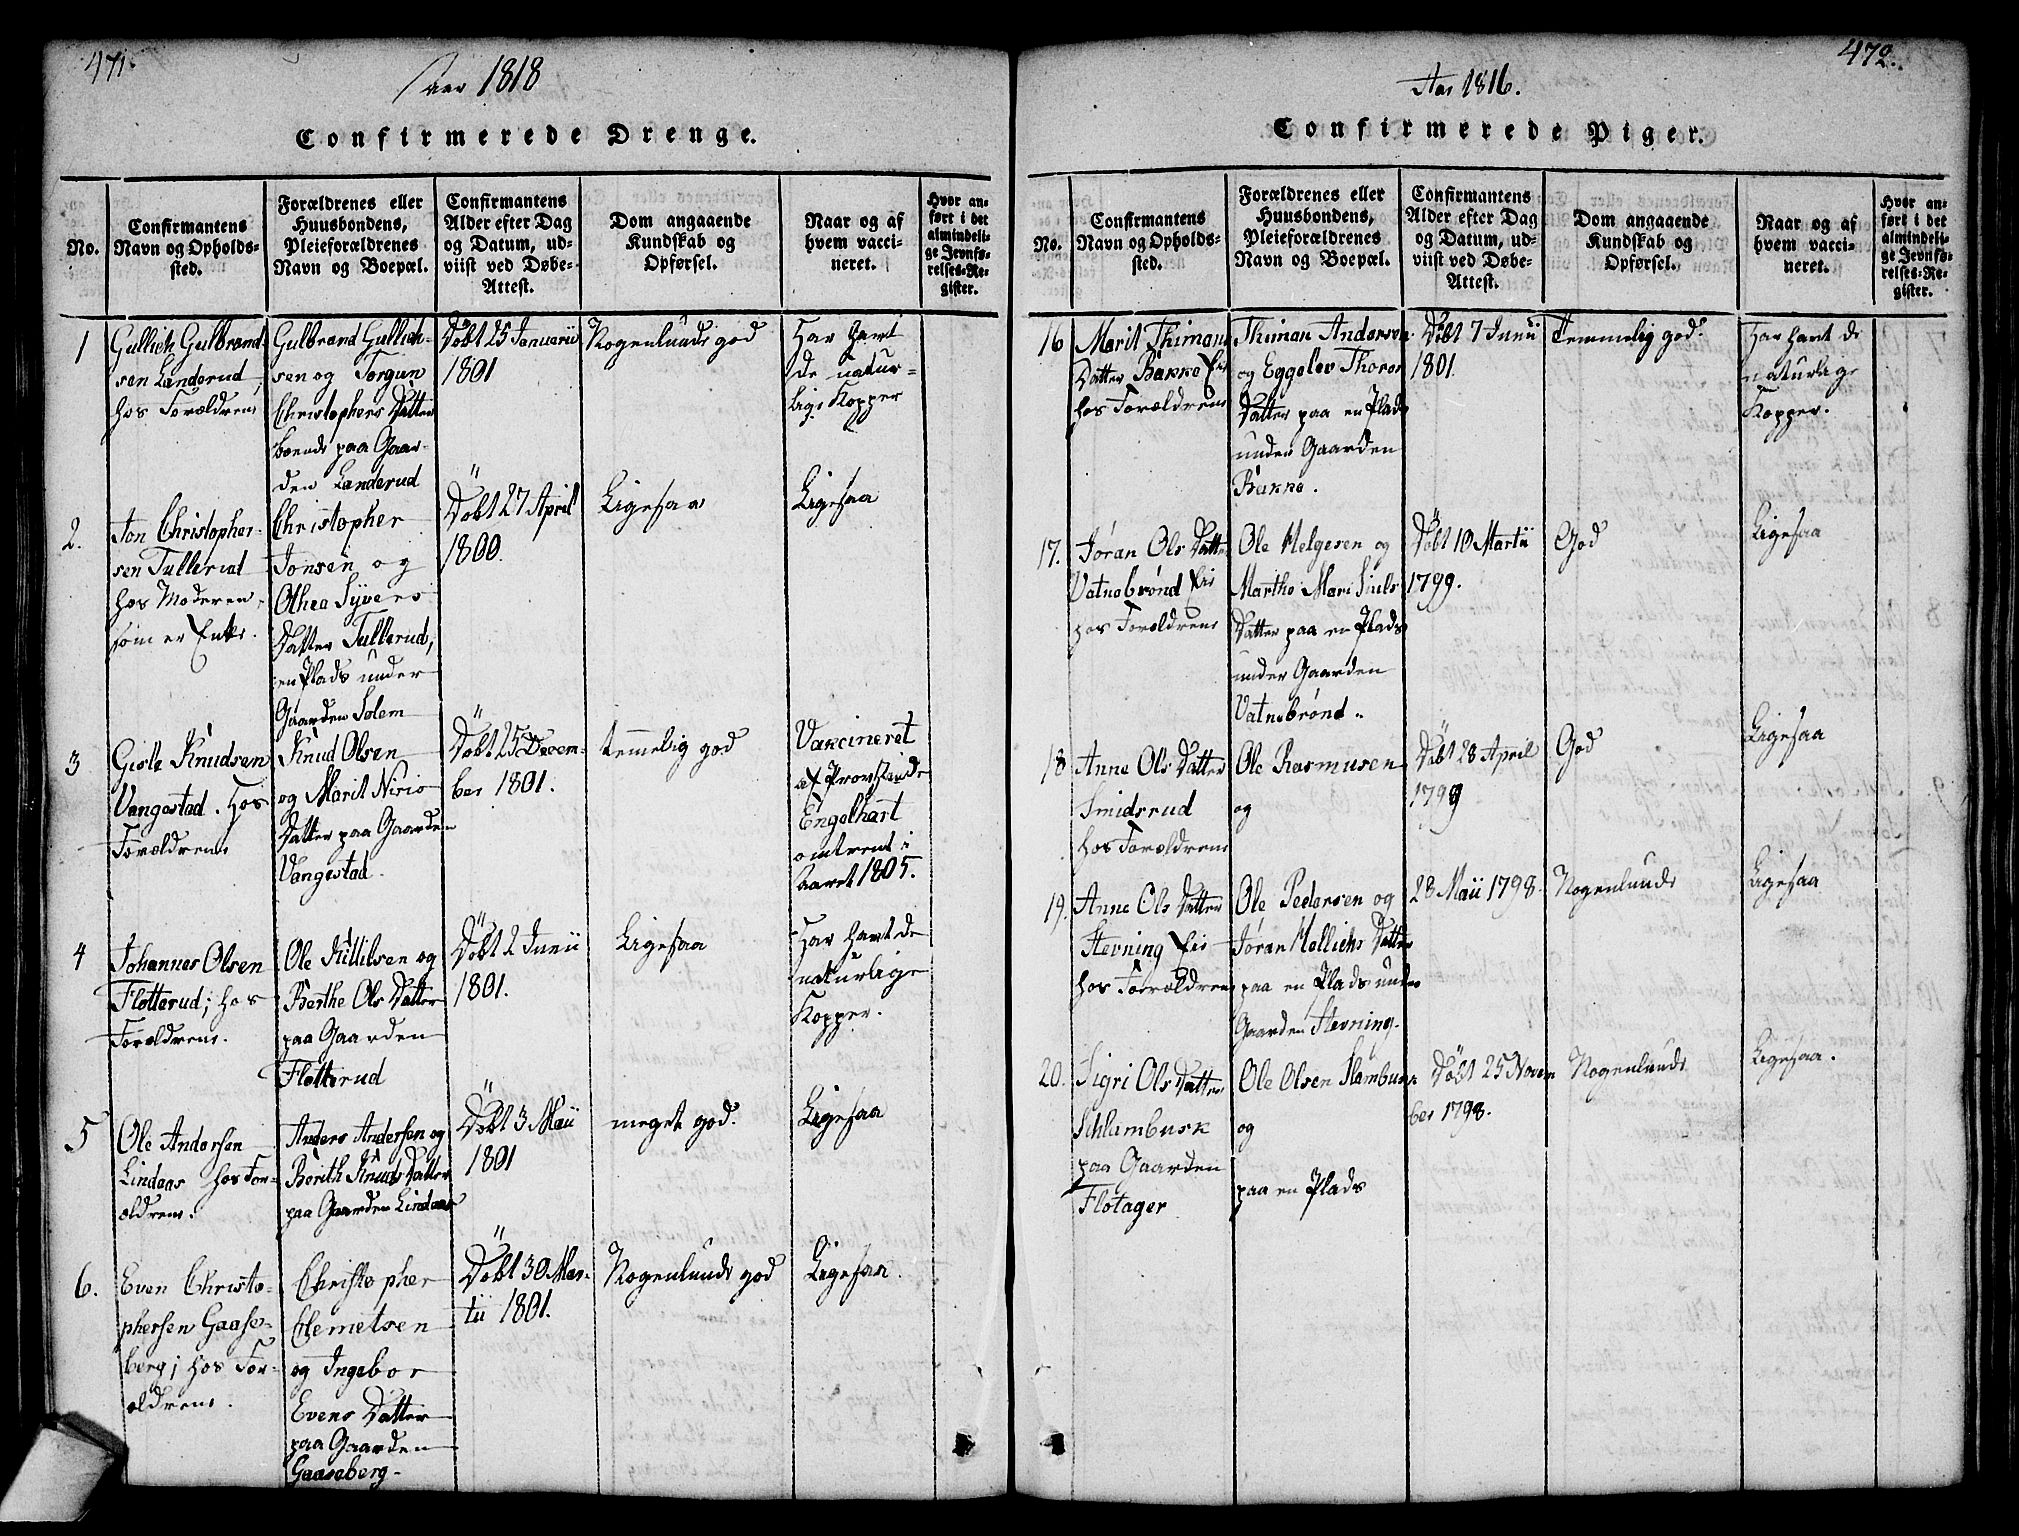 471.
Aar 1818
Confirmerede Drenge.
No.
Confirmantens
Navn og Opholds-
sted.
Forældrenes eller
Huusbondens,
Pleieforældrenes
Navn og Boepæl.
Confirmantens
Alder efter Dag
og Datum, ud-
viist ved Døbe-
Attest.
Dom angaaende
Kundskab og
Opførsel.
Naar og af
hvem vacci-
neret.
Hvor an-
ført i det
almindeli-
ge Jevnfø-
relses-Re-
gister.
1
Gullich Gulbrand-
sen Landerud,
hos Forældrene
Gulbrand Gullich-
sen og Torgun
Christophers Datter
boende paa Gaar-
den Landerud
Döbt 25 Januarii
1801
Nogenlunde god
Har havt
de natur-
lige Kopper
2.
Jon Christopher-
sen Tullerud
hos Moderen,
som er Enke.
Christopher
Jonsen og
Othea Syvers
Datter Tullerud,
en Plads under
Gaarden Solem
Döbt 27 April
1800.
Ligesaa
Ligesaa
3
Gisle Knudsen
Vangestad. Hos
Forældrene
Knud Olsen
og Marit Nirio
Datter paa Gaarden
Vangestad.
Döbt 25 Decem-
ber 1801.
temmelig god
Vaxcineret
af Provstinde
Engelhart
omtrent i
Aaret 1805.
4
Johannes Olsen
Flotterud; hos
Forældrene.
Ole Killilsen og
Berthe Ols Datter
paa Gaarden
Flotterud
Döbt 2 Junii
1801.
Ligesaa
Har havt de
naturlige
Kopper.
5
Ole Andersen
Lindaas hos For-
ældrene.
Anders Andersen og
Berith Knuds Datter
paa Gaarden Lindaas
Döbt 3 Maii
1801
meget god.
Ligesaa
6.
Even Christo-
phersen Gaase-
berg; hos For-
ældrene.
Christopher
Clemetsen
og Ingebor
Evens Datter
paa Gaarden
Gaaseberg-
Döbt 30 Mar-
tii 1801.
Nogenlunde god
Ligesaa.
472.
Aar 1816.
Confirmerede Piger.
No.
Confirmantens
Navn og Opholds-
sted.
Forældrenes eller
Huusbondens,
Pleieforældrenes
Navn og Boepæl.
Confirmantens
Alder efter Dag
og Datum, ud-
viist ved Døbe-
Attest.
Dom angaaende
Kundskab og
Opførsel.
Naar og af
hvem vacci-
neret.
Hvor an-
ført i det
almindeli-
ge Jevnfø-
relses-Re-
gister.
16
Marit Thimans
Datter Bakke Eie
hos Forældrene
Thiman Andersen
og Eggelev Thores
Datter paa en Plads
under Gaarden
Bakke.
Döbt 7 Junii
1801.
Temmelig god.
Har havt de
naturlige
Kopper.
17.
Jøran Ols Datter
Vatnebrønd Eie
hos Forældrene
Ole Helgesen og
Marthe Marie Siuls
Datter paa en Plads
under Gaarden
Vatnebrønd.
Döbt 10 Martii
1799.
God
Ligesaa
18
Anne Ols Datter
Smidsrud
hos Forældrene
Ole Rasmusen
og
Döbt 28 April
1799
God
Ligesaa
19.
Anne Ols Datter
Stevning Eie
hos Forældrene
Ole Pedersen og
Jøran Hellichs Datter
paa en Plads under
Gaarden Stevning.
28 Maii 1798.
Nogenlunde
Ligesaa
20.
Sigri Ols Datter
Schlambusk
paa Gaarden
Flotager
Ole Olsen Slambusk
og
paa en Plads
Döbt 25 Novem
ber 1798.
Nogenlunde
Ligesaa.